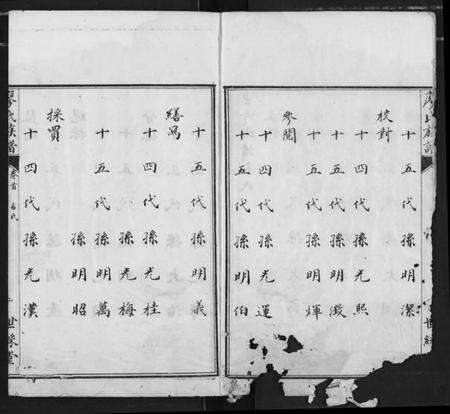 廖氏族譜
世綵
十五代孫明潔
校對
十四代孫光熙
十五代孫明澂
十五代孫明煇
參閱
十四代孫光運
十五代孫明伯
十五代孫明義
繕寫
十四代孫光桂
孫光梅
十五代孫明萬
孫明昭
採買
十四代孫光漢
廖氏族譜
卷首
世綵堂